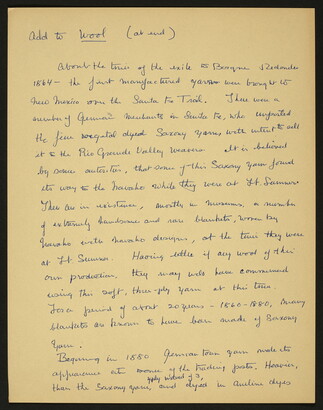 Add to Wool (at end)
About the time of the exile to Bosque Redondo
1864 - the first manufactured yarns were brought to
New Mexico over the Santa Fe Trail. There were a
number of German merchants in Santa Fe, who imported
the fine vegetal dyed Saxony yarns with intent to sell
it to the Rio Grande Valley weavers. It is believed
by some authorities, that some of this Saxony yarn found
its way to the Navaho while they were at Ft. Sumner.
There are in existence, mostly in museums, a number
of extremely handsome and rare blankets, woven by
Navaho with Navaho designs, at the time they were
at Ft. Sumner. Having little if any wool of their
own production, they may well have commenced
using this soft, three-ply yarn at this time.
For a period of about 20 years - 1860-1880, many
blankets are known to have been made of Saxony
yarn.
Beginning in 1880 Germantown yarn made its
appearance at some of the trading posts. Heavier,
4ply instead of 3,
than the Saxony yarn, and dyed in aniline dyes